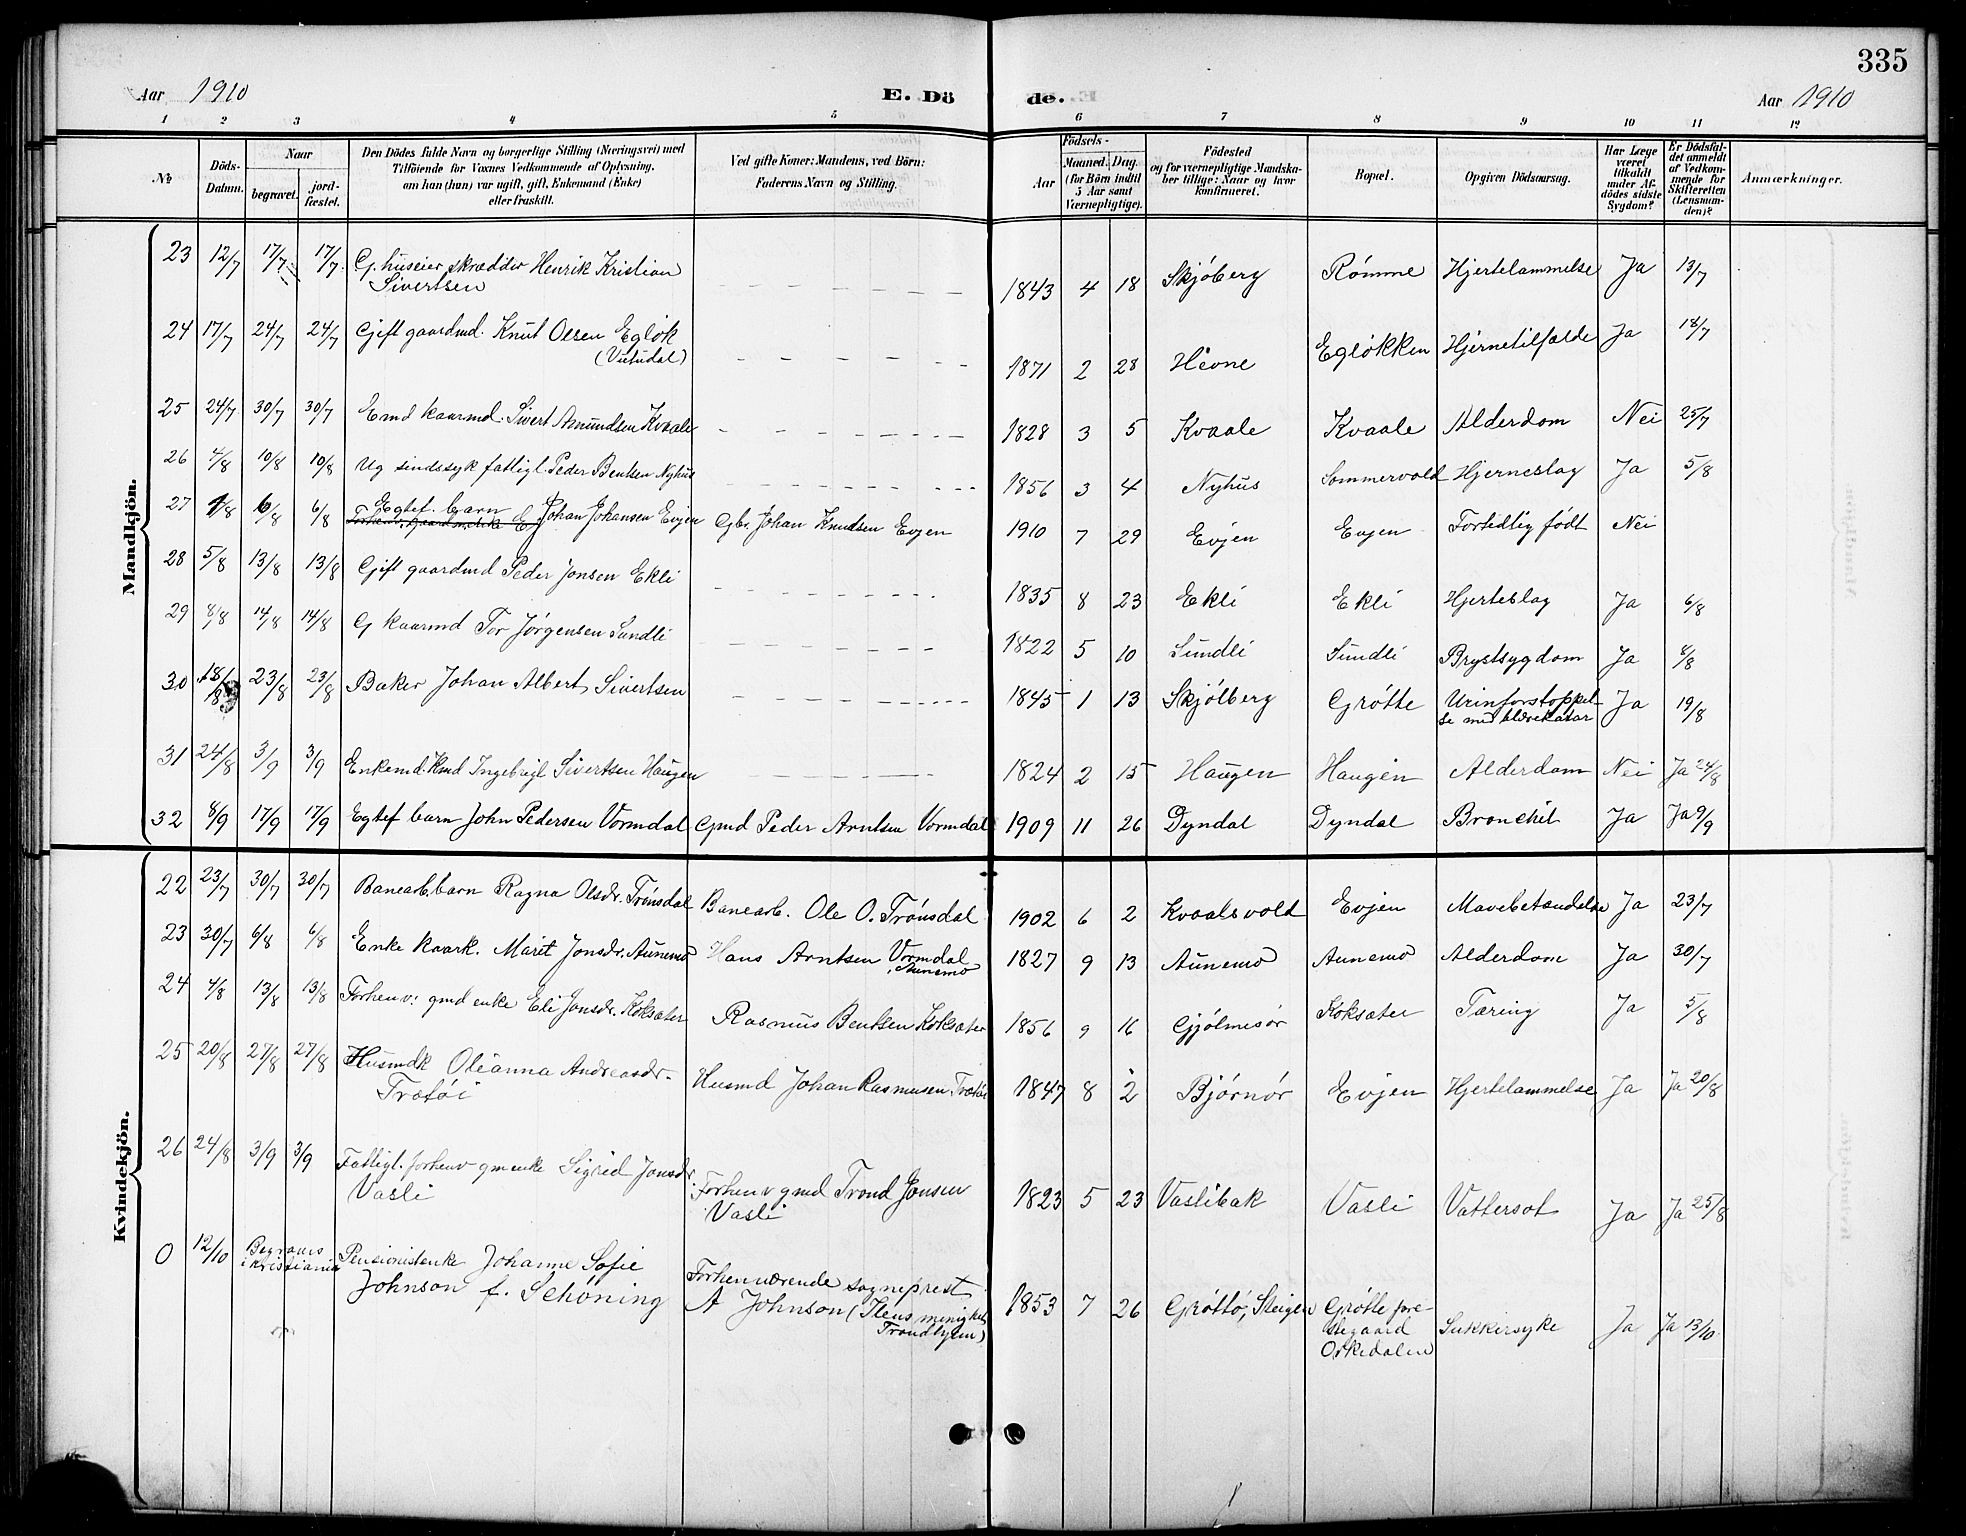 335
Aar 1910 E. Dö de. Aar 1910
1 2 3 4 5 6 7 8 9 10 11 12
No
Döds-
Datum.
Naar
begravet.
jord-
fæstet.
Den Dödes fulde Navn og borgerlige Stilling (Næringsvei) med
Tilföiende for Voxnes Vedkommende af Oplysning.
om han (hun) var ugift, gift, Enkemand (Enke)
eller fraskilt.
Ved gifte Koner: Mandens, ved Börn:
Faderens Navn og Stilling.
Födsels-
Aar
Maaned.
Dag.
(for Börn indtil
5 Aar samt
Værnepligtige).
Födested
og for værnepligtige Mandska-
ber tillige: Naar og hvor
konfirmeret.
Bopæl.
Opgiven Dödsaarsag.
Har Læge
været
tilkaldt
under Af-
dödes sidste
Sygdom?
Er Dödsfal-
det anmeldt
af Vedkom-
mende for
Skifteretten
(Lensman-
den)?
Anmærkninger.
Mandkjön.
23 12/7 17/7 17/7 G. huseier skrædder Henrik Kristian
Sivertsen
1843 4 18 Skjöberg Römme Hjertelammelse Ja 13/7
24 17/7 24/7 24/7 Gift gaardmd. Knut Olsen Eglök
(Vutudal)
1871 2 28 Hevne Eglökken Hjernetilfælde Ja 18/7
25 24/7 30/7 30/7 Emd kaarmd. Sivert Amundsen Kvaale
1828 3 5 Kvaale Kvaale Alderdom Nei 25/7
26 4/8 10/8 10/8 Ug sindssyk fatligl. Peder Bentsen Nyhus
1856 3 4 Nyhus Sommervold Hjerneslag Ja 5/8
27 1/8 6/8 6/8 Egtef. barn Johan Johansen Evjen Gbr. Johan Knudsen Evjen
1910 7 29 Evjen Evjen Fortidlig födt Nei
28 5/8 13/8 13/8 Gift gaardmd Peder Jonsen Ekli
1835 8 23 Ekli Ekli Hjerteslag Ja 6/8
29 8/8 14/8 14/8 G kaarmd Tor Jörgensen Sundli
1822 5 10 Sundli Sundli Brystsygdom Ja 8/8
30 18/8 23/8 23/8 Baker Johan Albert Sivertsen
1845 1 13 Skjölberg Grötte Urinforstoppel-
se med blærekatar Ja 19/8
31 24/8 3/9 3/9 Enkemd. Kmd Ingebrigt Sivertsen Haugen
1824 2 15 Haugen Haugen Alderdom Nei Ja 24/8
32 8/9 17/9 17/9 Egtef barn John Pedersen Vormdal Gmd Peder Arntsen Vormdal
1909 11 26 Dyndal Dyndal Bronchit Ja Ja 9/9
Kvindekjön.
22 23/7 30/7 30/7 Banearb. barn Ragna Olsdr. Trönsdal Banearb. Ole O. Trönsdal
1902 6 2 Kvaalsvold Evjen Mavebetændelse Ja 23/7
23 30/7 6/8 6/8 Enke kaark. Marit Jonsdr. Aunemo Hans Arntsen Vormdal
Aunemo
1827 9 13 Aunemo Aunemo Alderdom Ja 30/7
24 4/8 13/8 13/8 Forhenv: gmd enke Eli Jonsdr. Koksæter Rasmus Bentsen Koksæter
1856 9 16 Gjölmesör Koksæter Tæring Ja 5/8
25 20/8 27/8 27/8 Husmdk Oleanna Andreasdr.
Trætöi
Husmd Johan Rasmusen Trætöi
1847 8 2 Björnör Evjen Hjertelammelse Ja Ja 20/8
26 24/8 3/9 3/9 Fattigl. forhenv gm enke Sigrid Jonsdr.
Vasli
Forhenv gmd Trond Jonsen
Vasli
1823 5 23 Vaslibak Vasli Vattersot Ja Ja 25/8
0 12/10 Begraves
i Kristiania
Pensionistenke Johanne Sofie
Johnson f. Schöning
Forhenværende sogneprest
A Johnson (Ilens menighet
Trondhjem)
1853 7 26 Gröttö, Steigen Grötte pre-
stegaard
Orkedalen
Sukkersyke Ja Ja 13/10